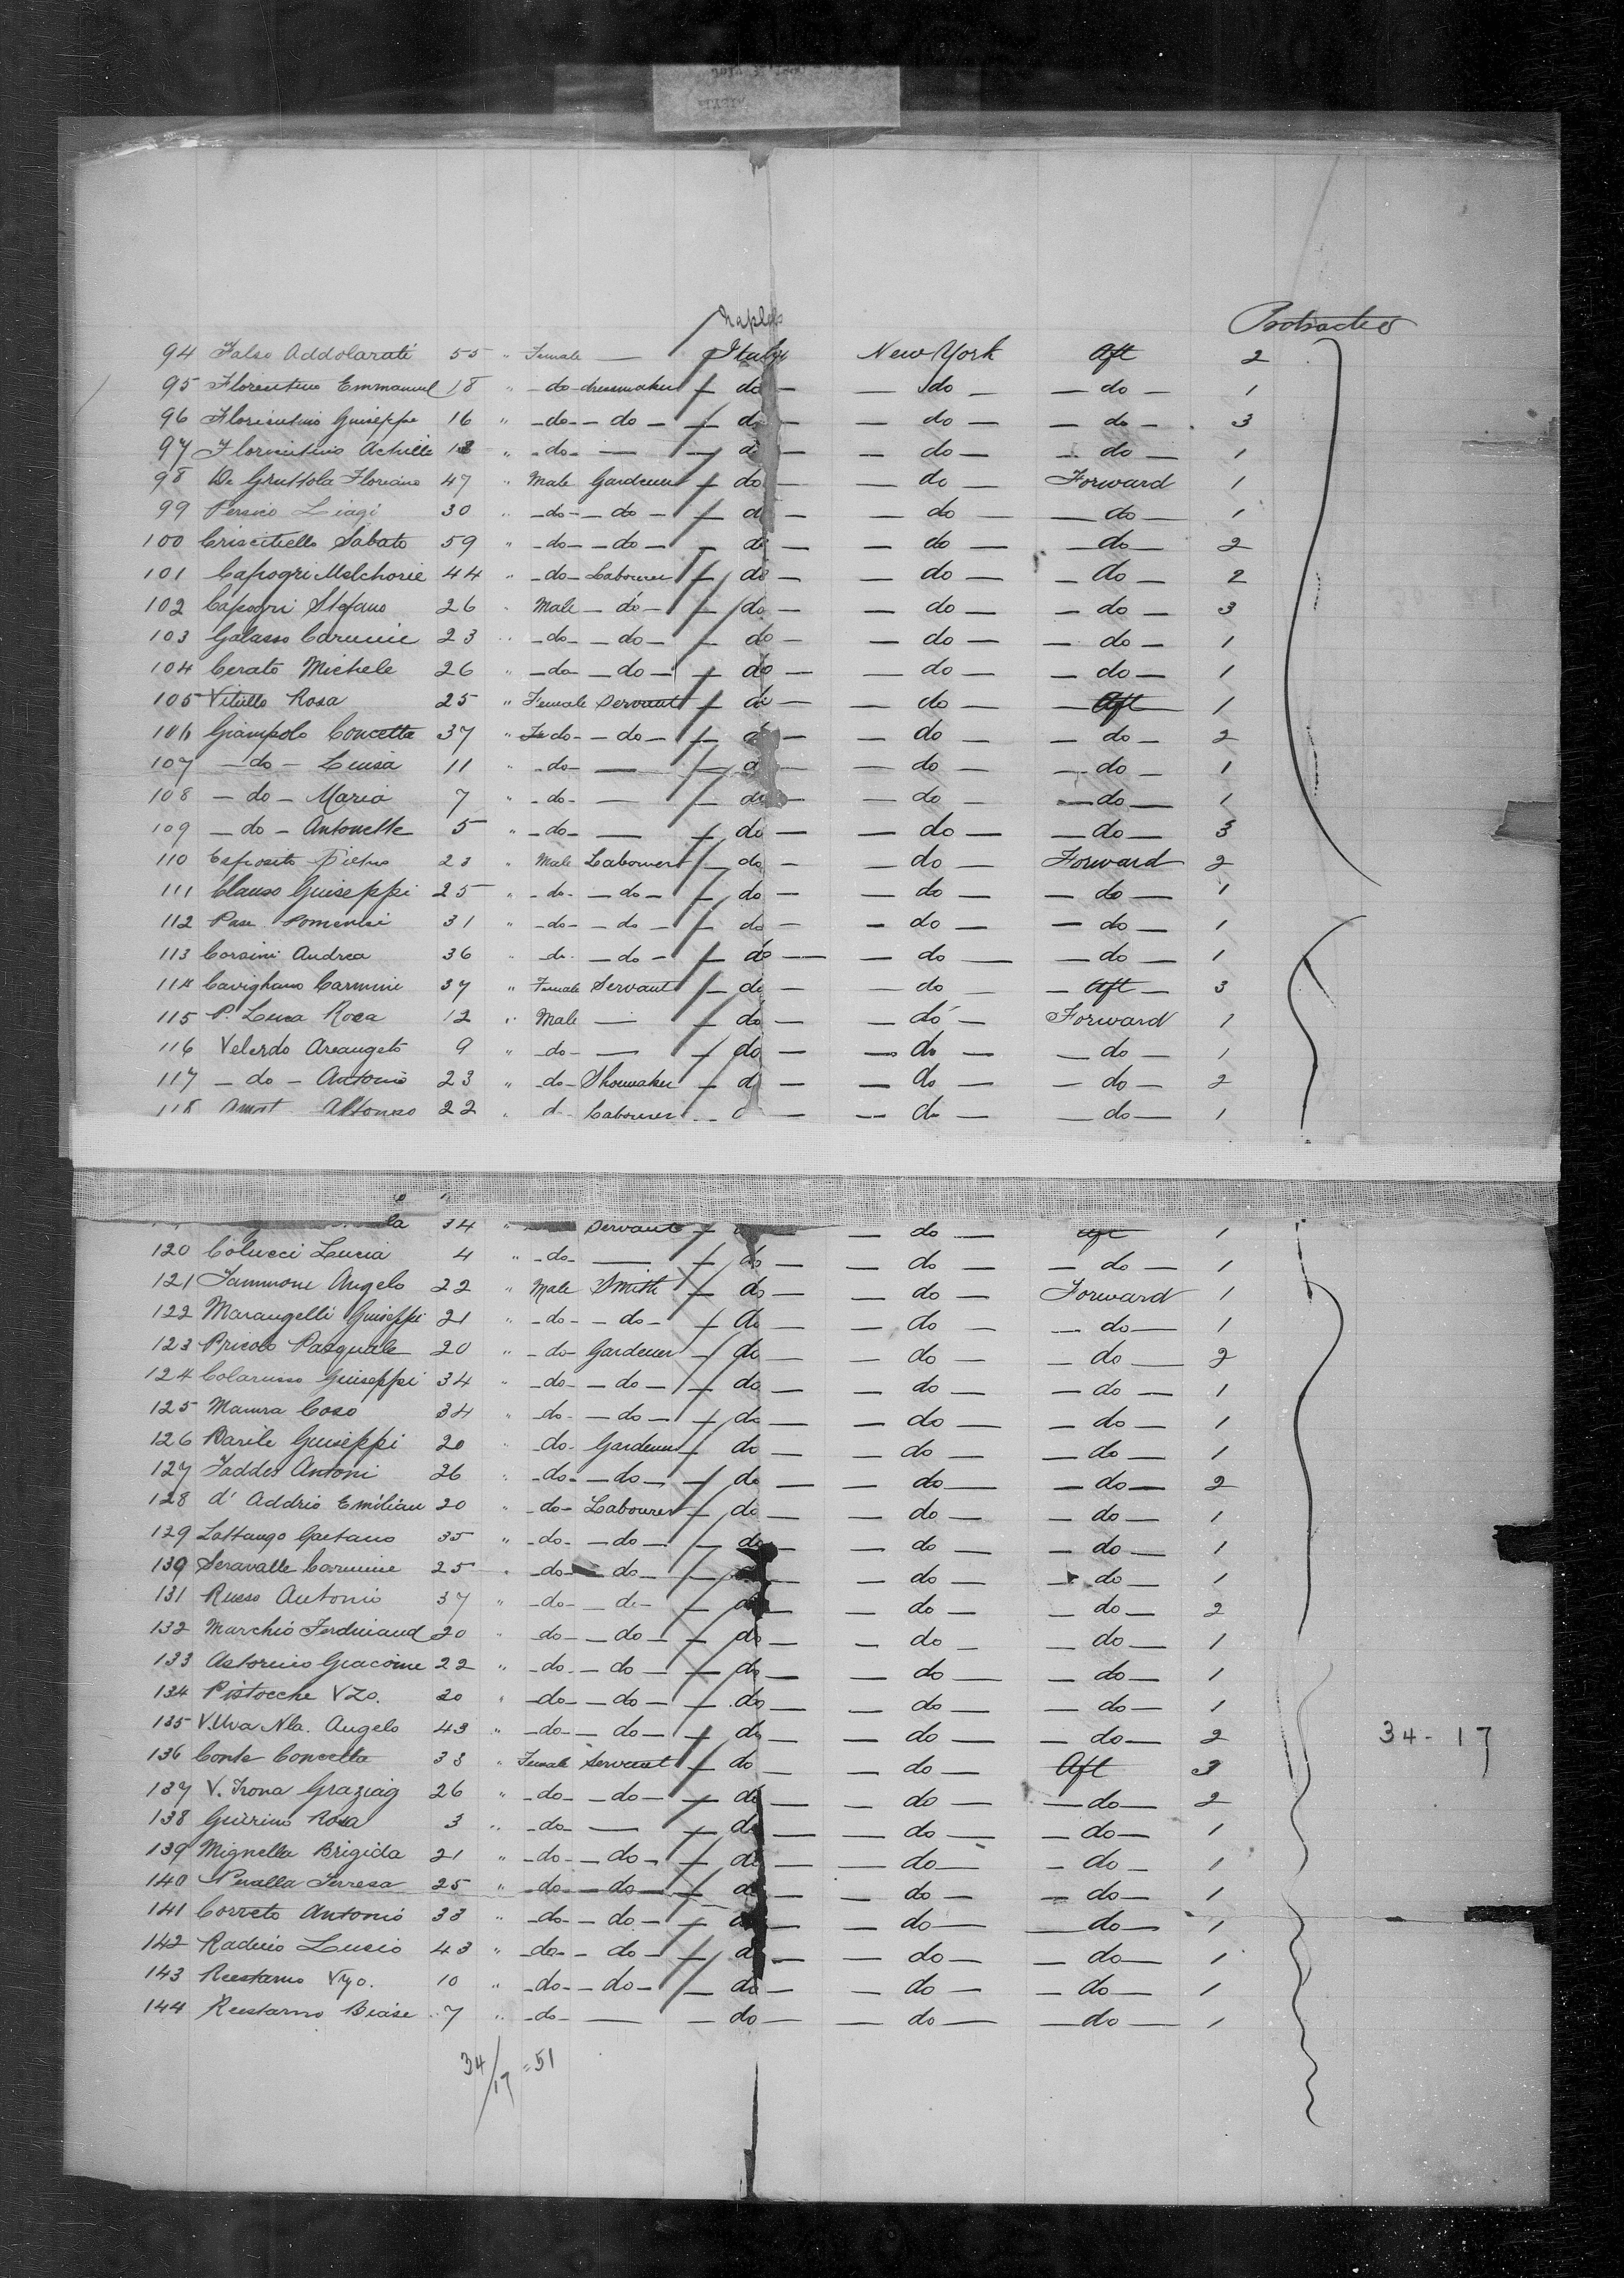 Naples
Protracted
94 Falso Addolarati 55 " Female — Italy New York Aft 2
95 Florentino Emmanuel 18 " - do - dressmaker - do - - do - - do - 1
96 Florentino Guiseppe 16 " - do - - do - - do - - do - - do - 3
97 Florentino Achille " - do - — - do - - do - - do - 1
98 De Gruttola Floriano 47 " Male Gardener - do - - do - Forward 1
99 Persico Liagi 30 " - do - - do - - do - - do - - do - 1
100 Criscitiello Sabato 59 " - do - - do - - do - - do - - do - 2
101 Capogri Melchorie 44 " - do - Labourer - do - - do - - do - 2
102 Capogri Stefano 26 " Male - do - - do - - do - - do - 3
103 Galasso Carmine 23 " - do - - do - - do - - do - - do - 1
104 Cerato Michele 26 " - do - - do - - do - - do - - do - 1
105 Vitiello Rosa 25 " Female Servant - do - - do - Aft 1
106 Giampolo Concetta 37 " do - - do - - do - - do - - do - 2
107 - do - Luisa 11 " - do - — - do - - do - - do - 1
108 - do - Maria 7 " - do - — - do - - do - - do - 1
109 - do - Antonette 5 " - do - — - do - - do - - do - 3
110 Esposito Pietro 23 " Male Labourer - do - - do - Forward 2
111 Clauso Guiseppi 25 " - do - - do - - do - - do - - do - 1
112 31 " - do - - do - - do - - do - - do - 1
113 Corsini Andrea 36 " - do - - do - - do - - do - - do - 1
114 Cavigliano Carmini 37 " Female Servant - do - - do - - Aft - 3
115 P. Luca Roca 12 " Male — - do - - do - Forward 1
116 Velardo Arcangelo 9 " - do - — - do - - do - - do - 1
117 - do - Antonio 23 " - do - Shoemaker - do - - do - - do - 2
118 Alfonso 22 " d- Labourer - do - - do - 1
la 34 " Servant - do - Aft 1
120 Colucci Lucia 4 " - do - — - do - - do - - do - 1
121 Iammone Angelo 22 " Male Smith - do - - do - Forward 1
122 Marangelli Guiseppi 21 " - do - - do - - do - - do - - do - 1
123 Pricolo Pasquale 20 " - do - Gardener - do - - do - - do - 2
124 Colarusso Guiseppi 34 " - do - - do - - do - - do - - do - 1
125 Maura Coso 34 " - do - - do - - do - - do - - do - 1
126 Barile Guiseppi 20 " - do - Gardener - do - - do - - do - 1
127 Taddes Antoni 26 " - do - - do - - do - - do - - do - 2
128 d' Addrio Emilian 20 " - do - Labourer - do - - do - - do - 1
129 Lattango Gaetano 35 " - do - - do - - do - - do - - do - 1
130 Seravalle Carmine 25 " - do - do - - do - - do - - do - 1
131 Russo Antonio 37 " - do - - do - - do - - do - - do - 2
132 Marchio Ferdinand 20 " - do - - do - - do - - do - - do - 1
133 Astorino Giacome 22 " - do - - do - - do - - do - - do - 1
134 Pistocche Vzo. 20 " - do - - do - - do - - do - - do - 1
135 V. Uva Nla. Angelo 43 " - do - - do - - do - - do - - do - 2
34 - 17
136 Conte Concetta 33 " Female Servant - do - - do - Aft 3
137 V. Trona Graziag 26 " - do - - do - - do - - do - - do - 2
138 Guerino Rosa 3 " - do - — - do - - do - - do - 1
139 Mignella Brigida 21 " - do - - do - - do - - do - - do - 1
140 Peralla Terresa 25 " - do - - do - - do - - do - - do - 1
141 Correto Antonio 33 " - do - - do - - do - - do - - do - 1
142 Radicio Lucio 43 " - do - - do - - do - - do - - do - 1
143 Reestarno Vzo. 10 " - do - - do - - do - - do - - do - 1
144 Reestarno Biase 7 " - do - — - do - - do - - do - 1
34/17 = 51